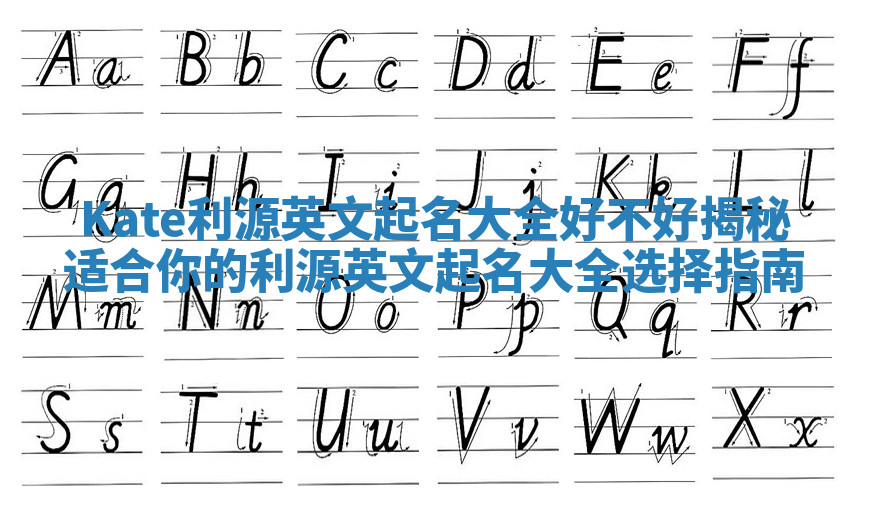 Aa Bb Cc Dd Ee Ff
Gg Hh Ii Jj Kk Ll
Kate利源英文起名大全好不好揭秘
适合你的利源英文起名大全选择指南
Mm Nn Oo Pp Qq Rr
Ss Tt Uu Vv Ww Xx